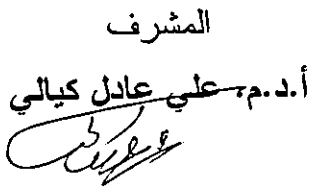 المشرف
أ.د.م. علي عادل كيالي